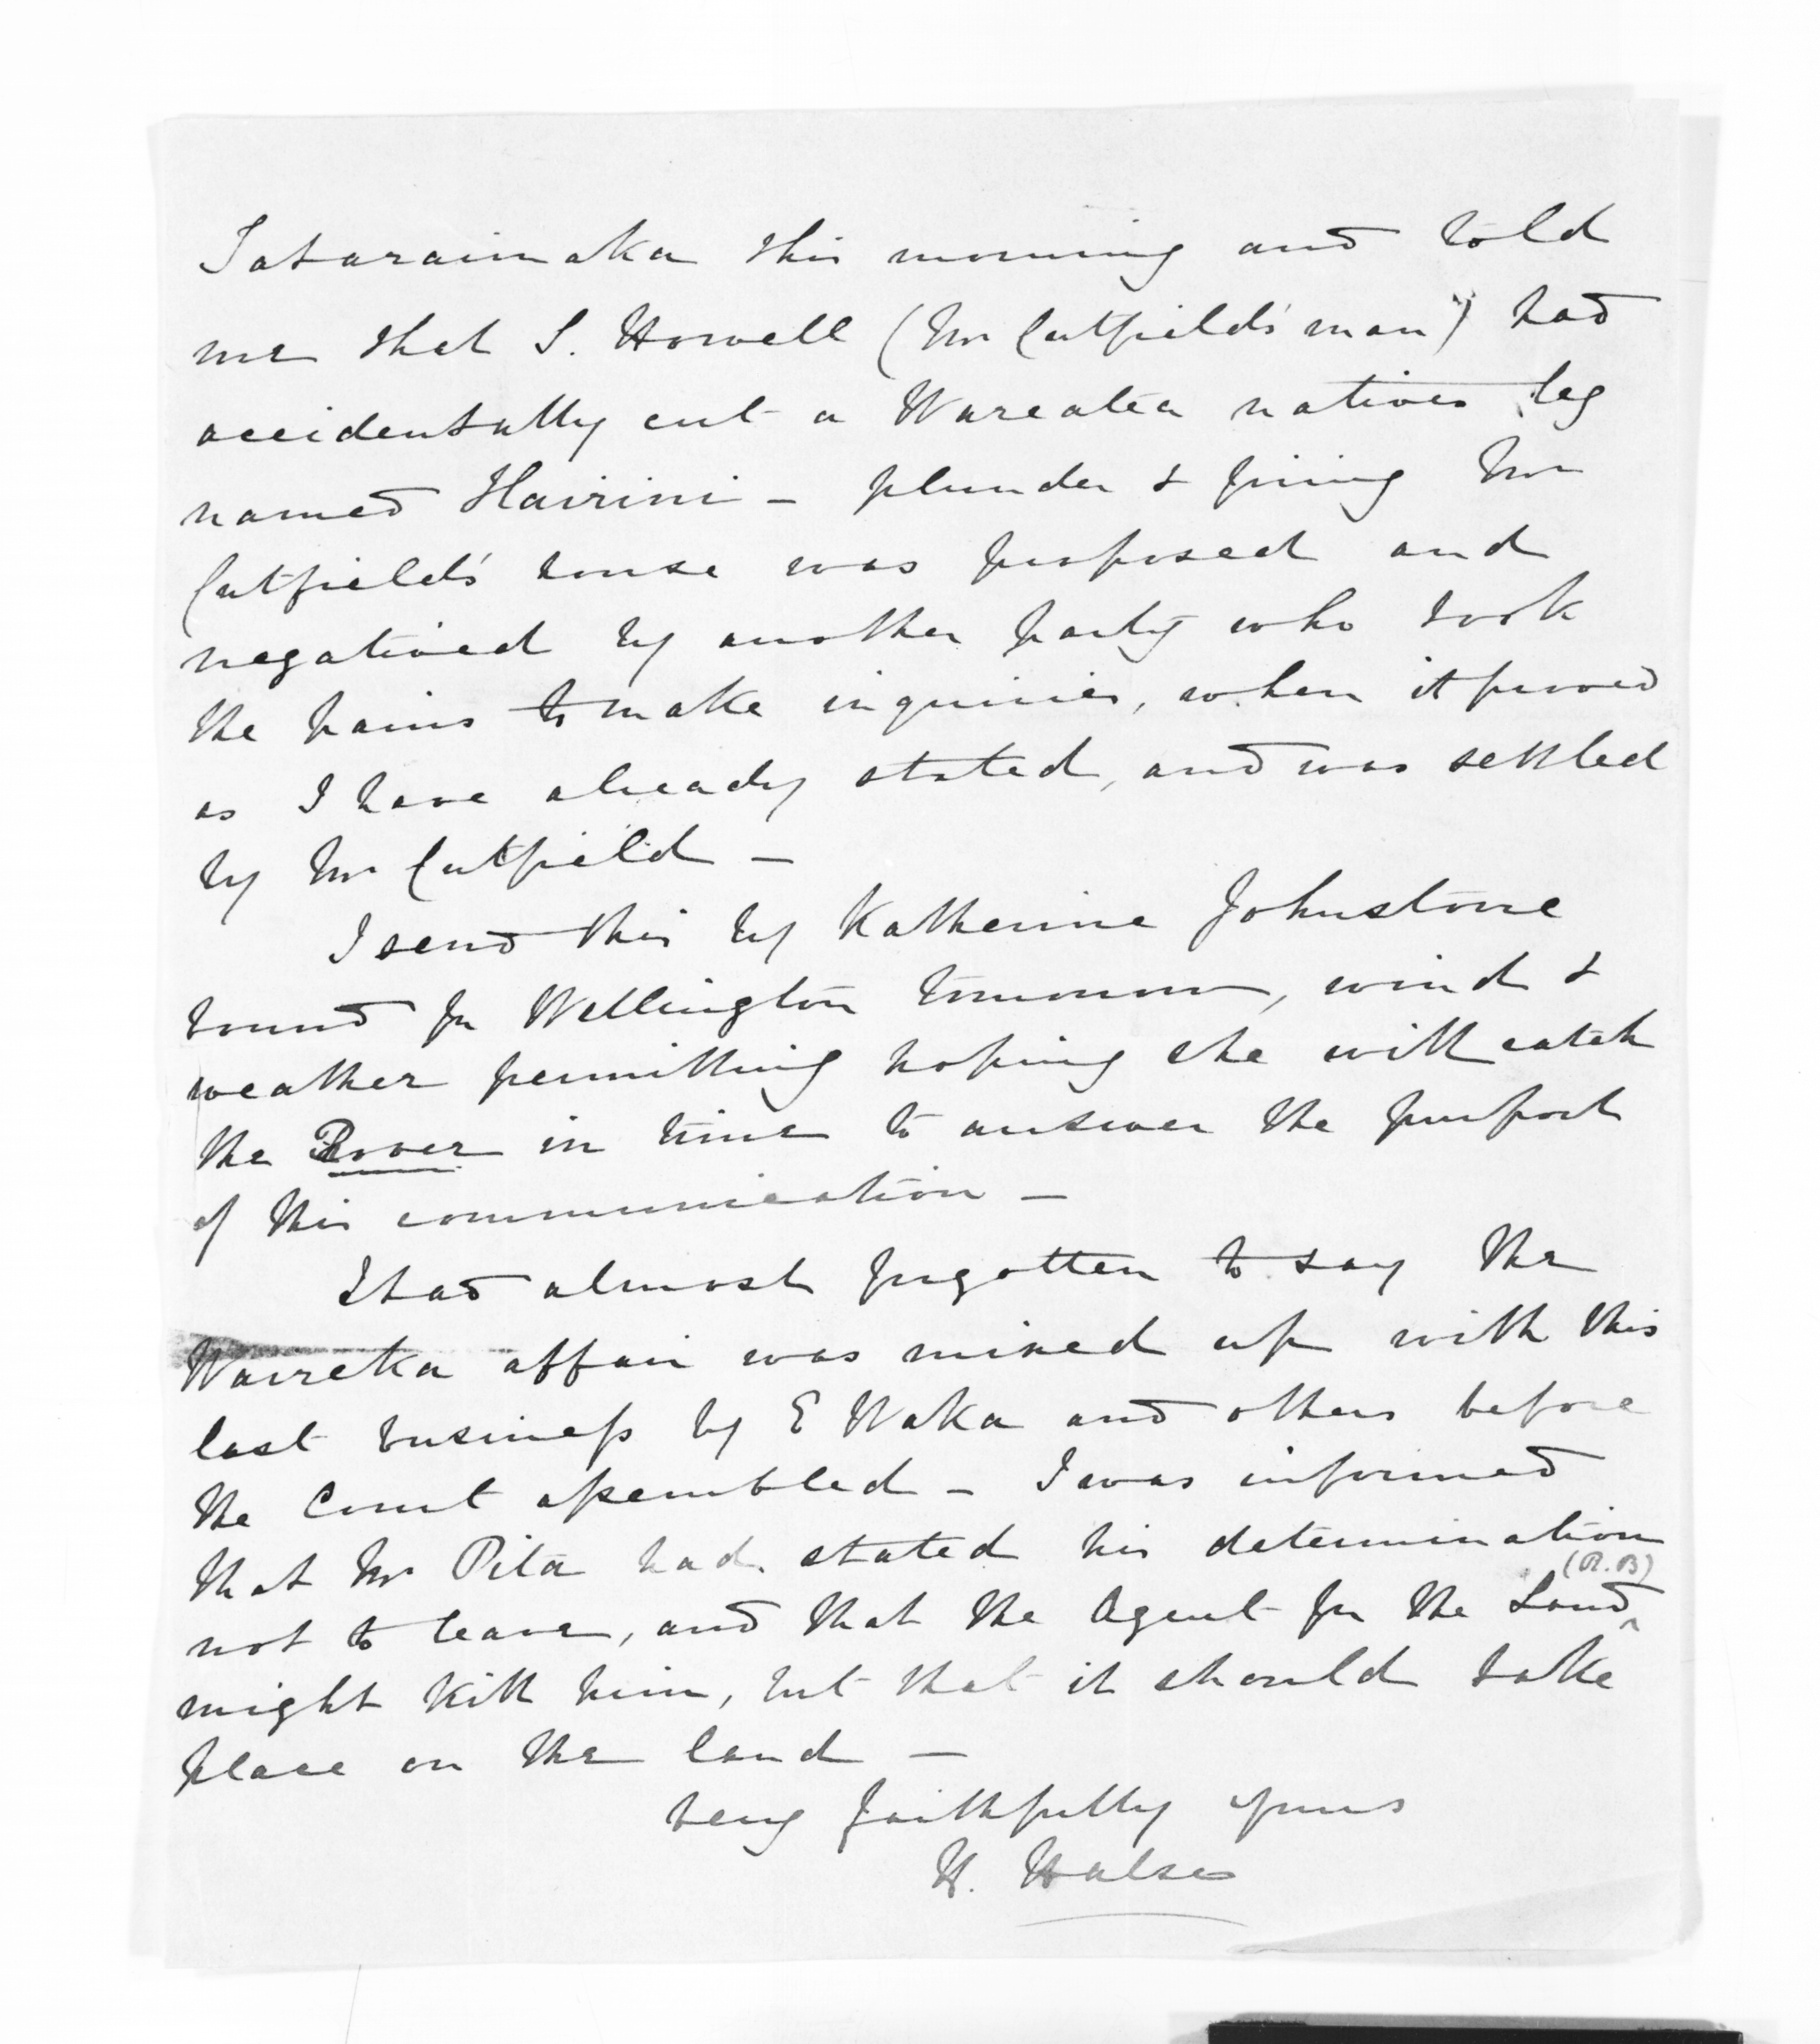 Tataraimaka this morning and told
me that S. Howell (Mr Cutfield's man) had
accidentally cut a Wareatea natives leg
named Hairini - plunder & firing Mr
Cutfield's house was proposed and
negatived by another party who took
the pains to make inquiries, when it proved
as I have already stated, and was settled
by Mr Cutfield -
I send this by Katherine Johnstone
bound for Wellington tomorrow, wind &
weather permitting hoping she will catch
the Rover in time to answer the purport
of this communication -
I had almost forgotten to say the
Waireka affair was mixed up with this
last business by E Waka and others before
the Court assembled - I was informed
that Mr Pita had stated his determination
not to leave, and that the Agent for the Land (R.B)
might kill him, but that it should take
place on the land -
very faithfully yours
H. Halse